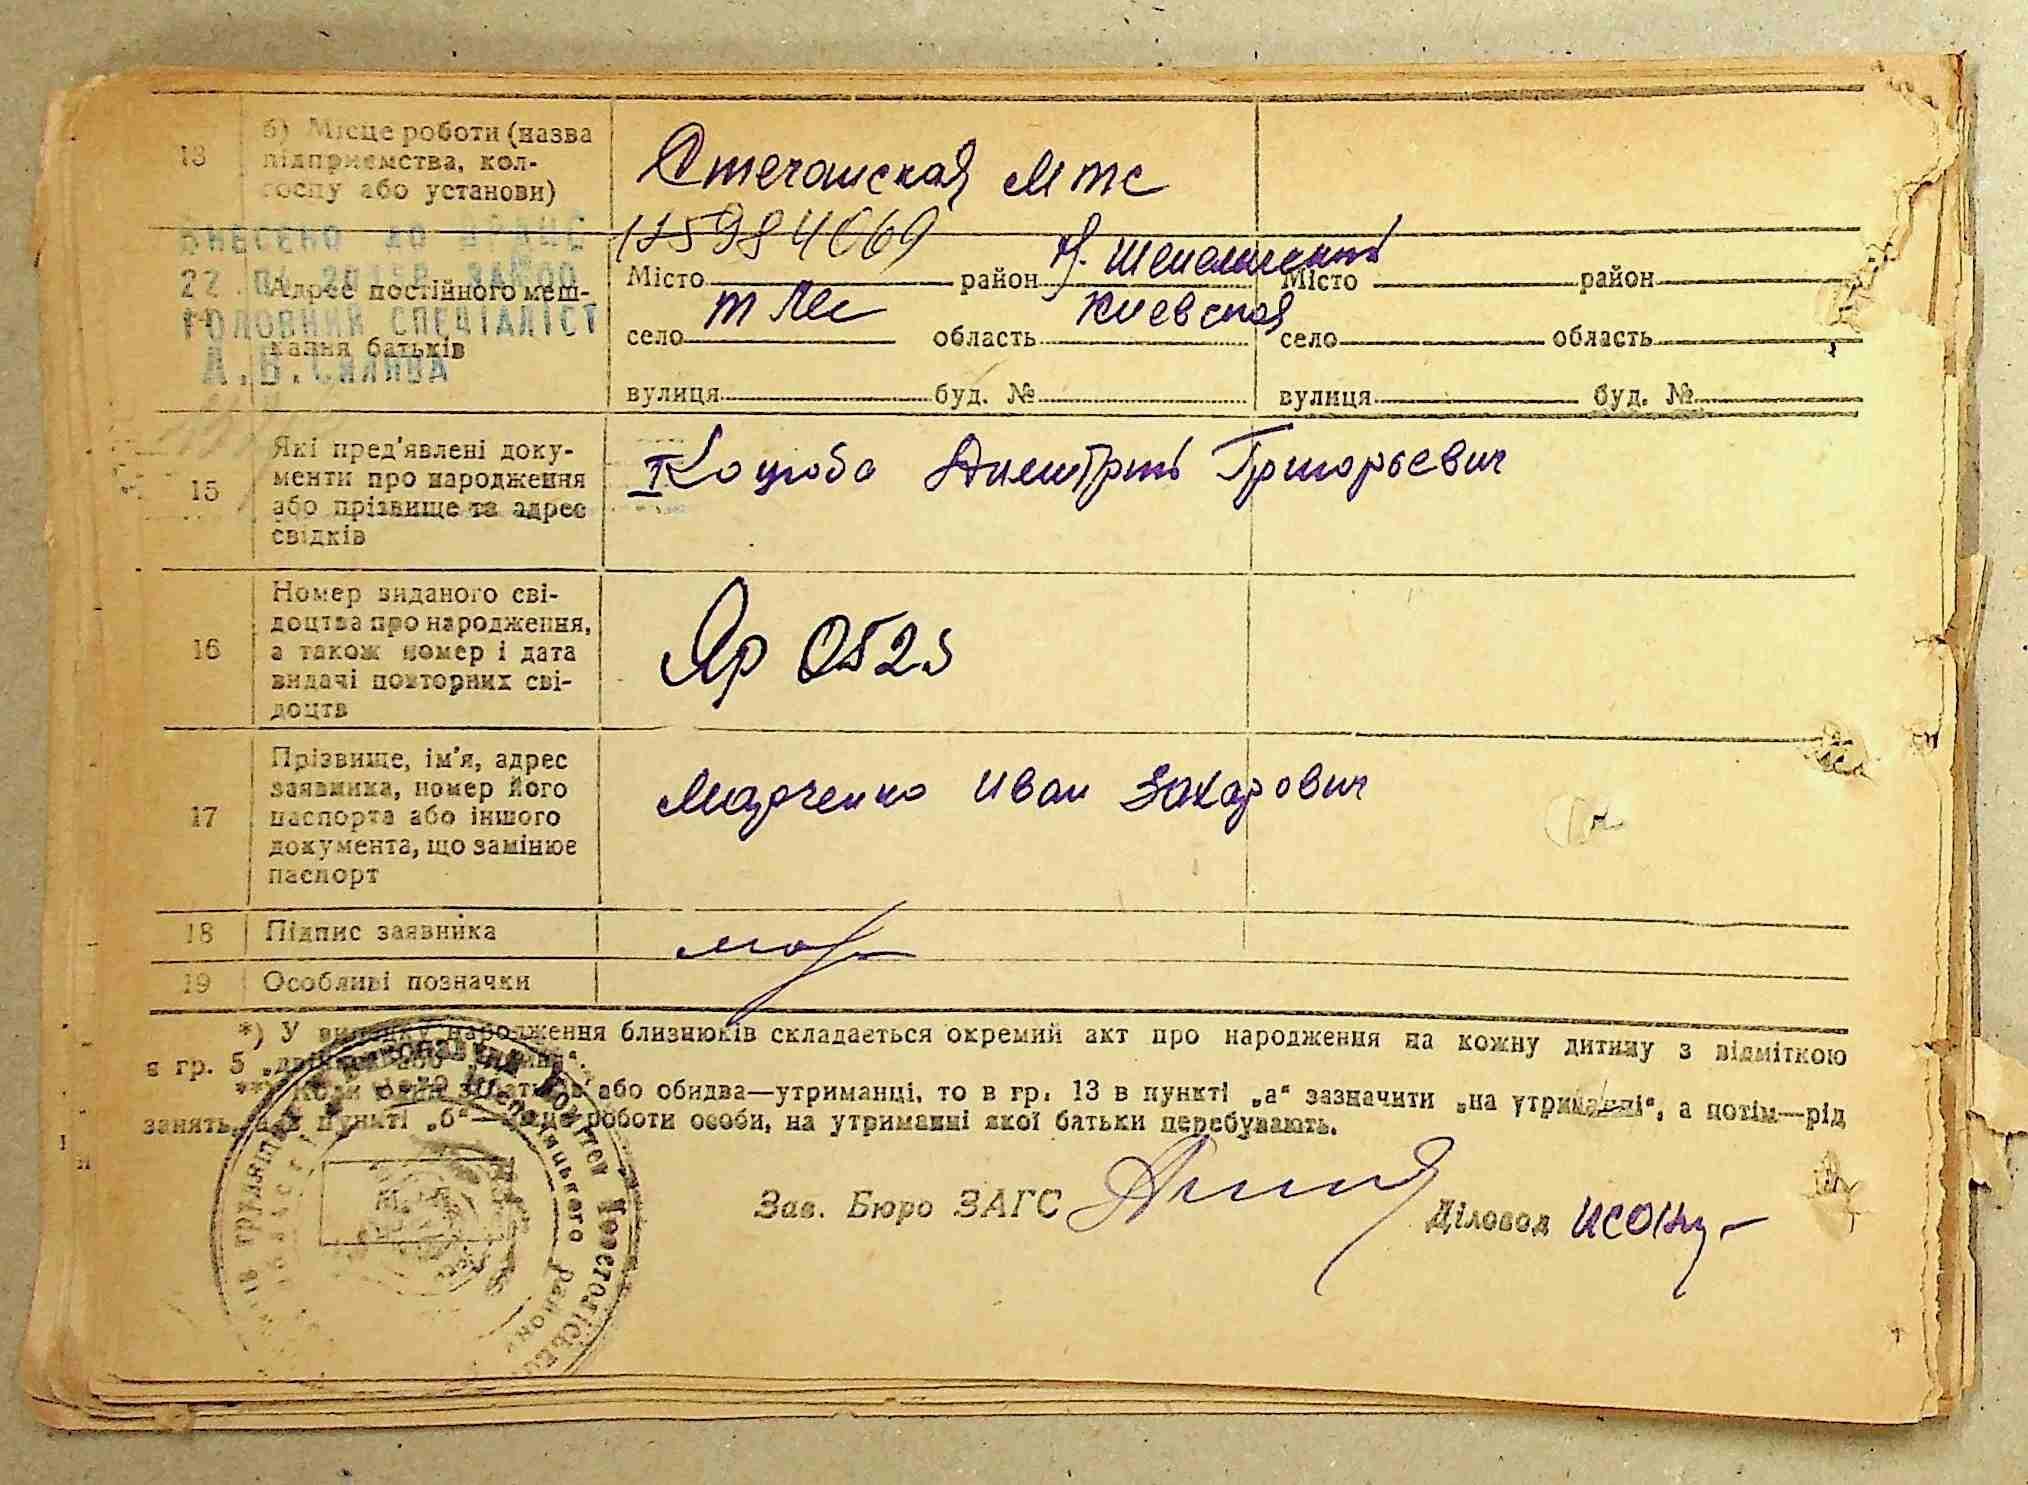 13 б) Місце роботи (назва
підприємства, кол-
госпу або установи)
Стечанская МТС
ВНЕСЕНО ДО ДРАЦС
22 2015Р.
ГОЛОВНИЙ СПЕЦІАЛІСТ
А.В.
Адрес постійного меш-
кання батьків
Місто район Місто район
село область Киевская село область
вулиця буд. № вулиця буд. №
15 Які пред'явлені доку-
менти про народження
або прізвище та адрес
свідків
I Коцюба Дмитрий Григорьевич
16 Номер виданого сві-
доцтва про народження,
а також номер і дата
видачі повторних сві-
доцтв
Яр 0525
17 Прізвище, ім'я, адрес
заявника, номер його
паспорта або іншого
документа, що замінює
паспорт
Марченко Иван Захарович
18 Підпис заявника
19 Особливі позначки
*) У випадку народження близнюків складається окремий акт про народження на кожну дитину з відміткою
в гр. 5
або обидва—утриманці, то в гр. 13 в пункті „а“ зазначити „на утриманні“, а потім—рід
занять, а в пункті „б“—місце роботи особи, на утриманні якої батьки перебувають.
Зав. Бюро ЗАГС Діловод